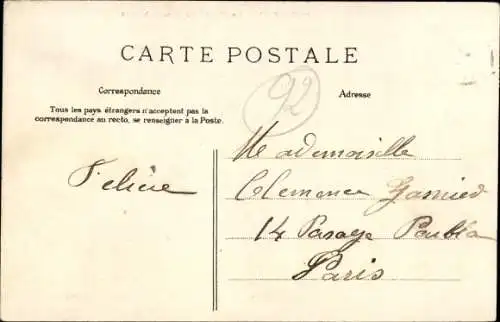 CARTE POSTALE
92
Correspondance
Adresse
Tous les pays étrangers n'acceptent pas la
correspondance au recto, se renseigner à la Poste.
Félicie
Mademoiselle
Clemence Garnier
14 Passage
Paris